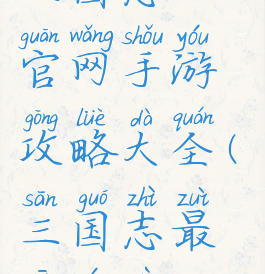 guān wǎng shǒu yóu
官网手游
gōng lüè dà quán
攻略大全(
sān guó zhì zuì
三国志最